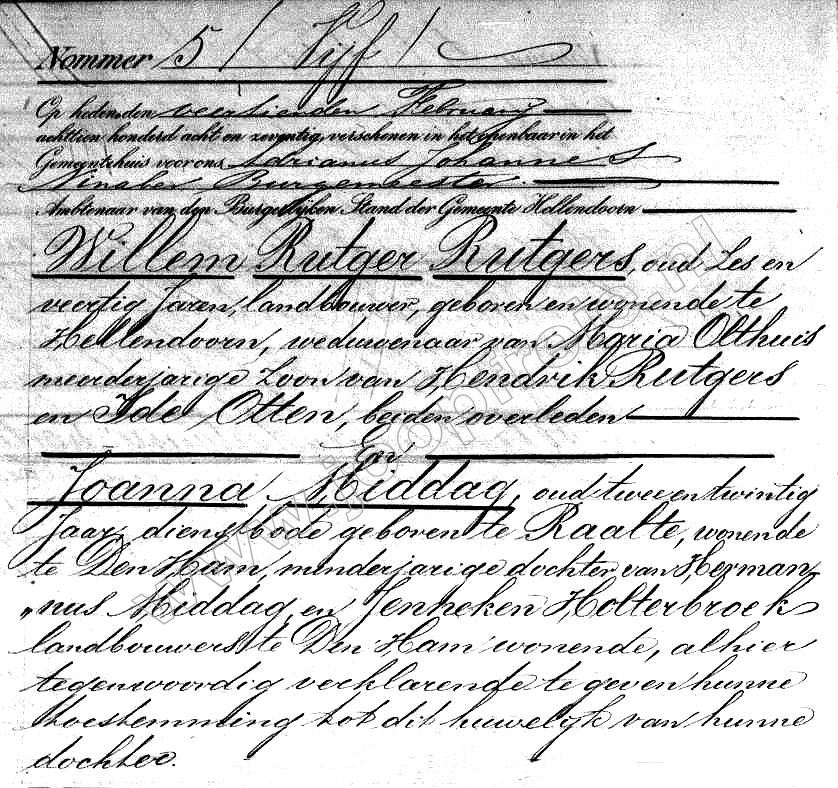 Nommer 5 / Vijf /
Op heden den veertienden February
achttien honderd acht en zeventig, verschenen in het openbaar in het
Gemeentehuis voor ons Adrianus Johannes
Burgemeester
Ambtenaar van den Burgerlijken Stand der Gemeente Hellendoorn
Willem Rutger Rutgers, oud zes en
veertig Jaren, landbouwer, geboren en wonende te
Hellendoorn, weduwenaar van Maria Olthuis
meerderjarige zoon van Hendrik Rutgers
en Ide Otten, beiden overleden
En
Joanna Middag, oud twee en twintig
Jaar, dienstbode geboren te Raalte, wonende
te Den Ham, minderjarige dochter van Herman
„nus Middag en Jenneken Holterbroek
landbouwers te Den Ham wonende, alhier
tegenwoordig verklarende te geven hunne
toestemming tot dit huwelijk van hunne
dochter.